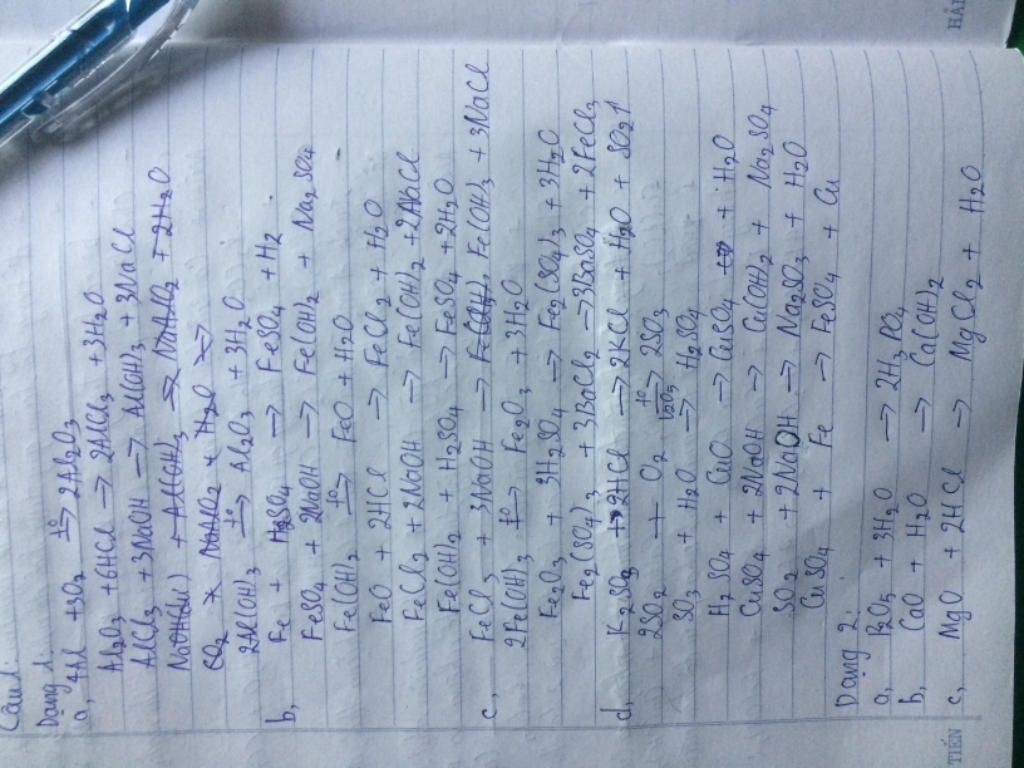 Câu 1:
Dạng 1:
a, 4Al + 3O2 t°→ 2Al2O3
Al2O3 + 6HCl → 2AlCl3 + 3H2O
AlCl3 + 3NaOH → Al(OH)3 + 3NaCl
+ Al(OH)3 → NaAlO2 + 2H2O
CO2 + NaAlO2 + H2O →
2Al(OH)3 t°→ Al2O3 + 3H2O
b, Fe + H2SO4 → FeSO4 + H2
FeSO4 + 2NaOH → Fe(OH)2 + Na2SO4
Fe(OH)2 t°→ FeO + H2O
FeO + 2HCl → FeCl2 + H2O
FeCl2 + 2NaOH → Fe(OH)2 + 2NaCl
Fe(OH)2 + H2SO4 → FeSO4 + 2H2O
c, FeCl3 + 3NaOH → Fe(OH)3 Fe(OH)3 + 3NaCl
2Fe(OH)3 t°→ Fe2O3 + 3H2O
Fe2O3 + 3H2SO4 → Fe2(SO4)3 + 3H2O
Fe2(SO4)3 + 3BaCl2 → 3BaSO4 + 2FeCl3
d, K2SO3 + 2HCl → 2KCl + H2O + SO2↑
2SO2 + O2 t°→ V2O5 2SO3
SO3 + H2O → H2SO4
H2SO4 + CuO → CuSO4 + H2O
CuSO4 + 2NaOH → Cu(OH)2 + Na2SO4
SO2 + 2NaOH → Na2SO3 + H2O
CuSO4 + Fe → FeSO4 + Cu
Dạng 2:
a, P2O5 + 3H2O → 2H3PO4
b, CaO + H2O → Ca(OH)2
c, MgO + 2HCl → MgCl2 + H2O
TIẾN